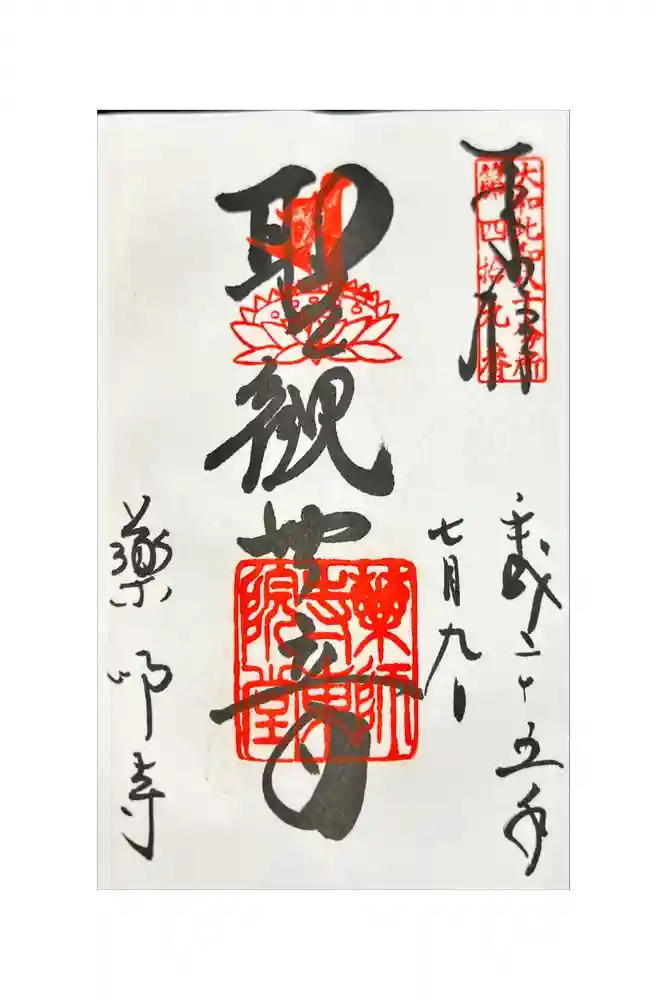 奉拝
大和北部八十八ヶ所
第四拾九番
平成二十五年
七月九日
聖観世音
薬師寺東院堂
薬師寺